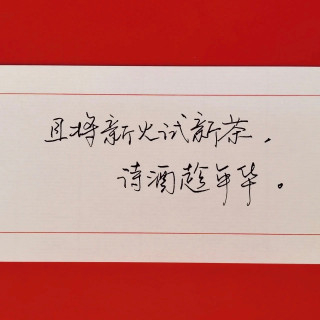 且将新火试新茶，
诗酒趁年华。